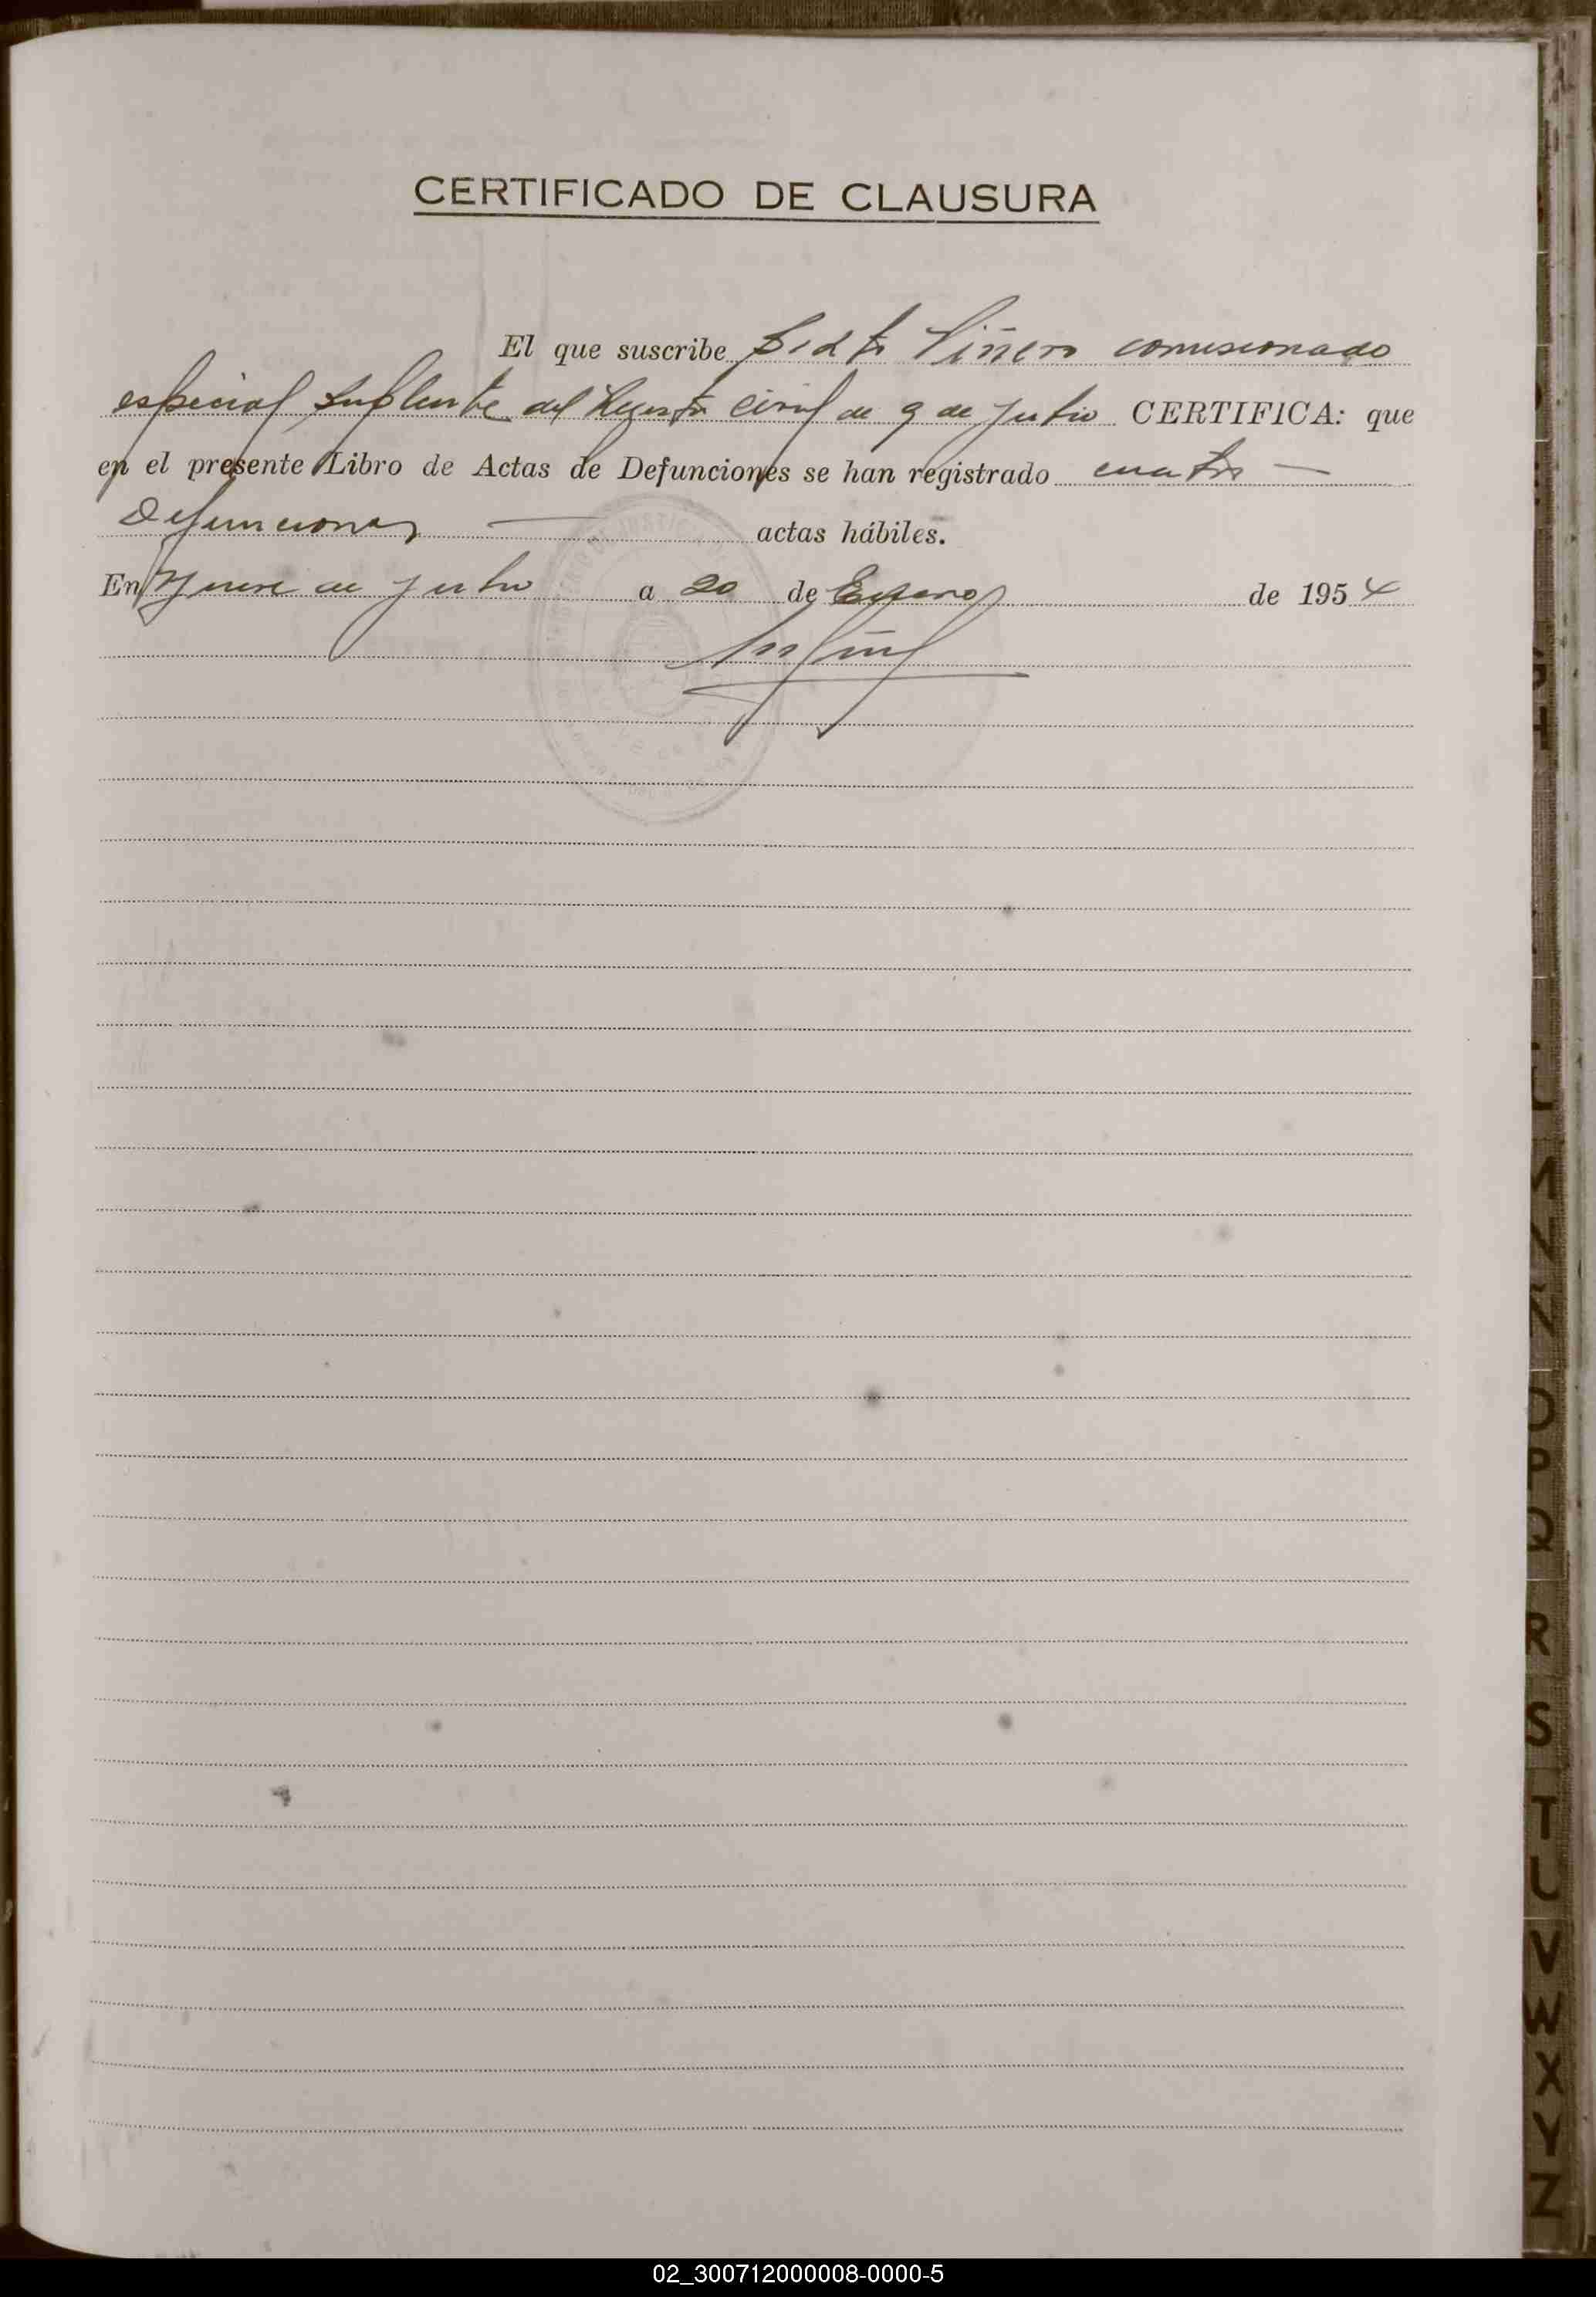 CERTIFICADO DE CLAUSURA
El que suscribe Sixto Piñero comisionado
especial suplente del Registro civil de 9 de Julio CERTIFICA: que
en el presente Libro de Actas de Defunciones se han registrado cuatro —
Defunciones — actas hábiles.
En Nueve de Julio a 20 de Enero de 1954
R
S
T
U
V
W
X
Y
Z
02_300712000008-0000-5